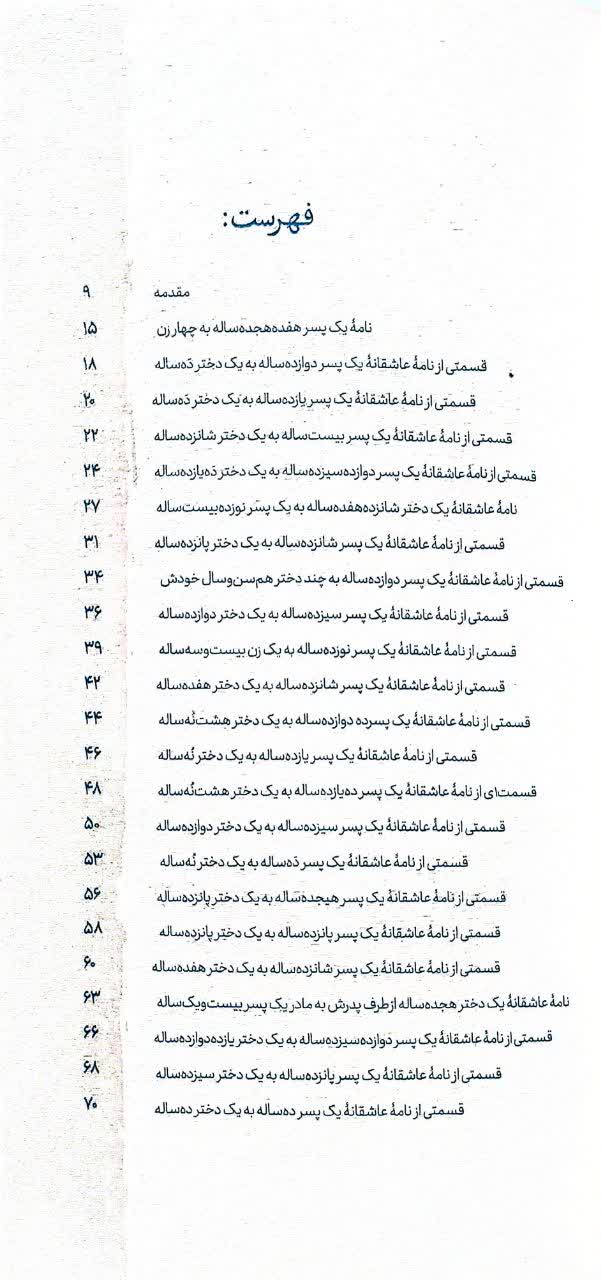 فهرست:
مقدمه ۹
نامهٔ یک پسر هفده‌هجده‌ساله به چهار زن ۱۵
قسمتی از نامهٔ عاشقانهٔ یک پسر دوازده‌ساله به یک دختر دَه‌ساله ۱۸
قسمتی از نامهٔ عاشقانهٔ یک پسر یازده‌ساله به یک دختر دَه‌ساله ۲۰
قسمتی از نامهٔ عاشقانهٔ یک پسر بیست‌ساله به یک دختر شانزده‌ساله ۲۲
قسمتی از نامهٔ عاشقانهٔ یک پسر دوازده‌سیزده‌ساله به یک دختر دَه‌یازده‌ساله ۲۴
نامهٔ عاشقانهٔ یک دختر شانزده‌هفده‌ساله به یک پسر نوزده‌بیست‌ساله ۲۷
قسمتی از نامهٔ عاشقانهٔ یک پسر شانزده‌ساله به یک دختر پانزده‌ساله ۳۱
قسمتی از نامهٔ عاشقانهٔ یک پسر دوازده‌ساله به چند دختر هم‌سن‌وسال خودش ۳۴
قسمتی از نامهٔ عاشقانهٔ یک پسر سیزده‌ساله به یک دختر دوازده‌ساله ۳۶
قسمتی از نامهٔ عاشقانهٔ یک پسر نوزده‌ساله به یک زن بیست‌وسه‌ساله ۳۹
قسمتی از نامهٔ عاشقانهٔ یک پسر شانزده‌ساله به یک دختر هفده‌ساله ۴۲
قسمتی از نامهٔ عاشقانهٔ یک پسرده دوازده‌ساله به یک دختر هشت‌نُه‌ساله ۴۴
قسمتی از نامهٔ عاشقانهٔ یک پسر یازده‌ساله به یک دختر نُه‌ساله ۴۶
قسمت۱ی از نامهٔ عاشقانهٔ یک پسر ده‌یازده‌ساله به یک دختر هشت‌نُه‌ساله ۴۸
قسمتی از نامهٔ عاشقانهٔ یک پسر سیزده‌ساله به یک دختر دوازده‌ساله ۵۰
قسمتی از نامهٔ عاشقانهٔ یک پسر دَه‌ساله به یک دختر نُه‌ساله ۵۳
قسمتی از نامهٔ عاشقانهٔ یک پسر هیجده‌ساله به یک دختر پانزده‌ساله ۵۶
قسمتی از نامهٔ عاشقانهٔ یک پسر پانزده‌ساله به یک دختر پانزده‌ساله ۵۸
قسمتی از نامهٔ عاشقانهٔ یک پسر شانزده‌ساله به یک دختر هفده‌ساله ۶۰
نامهٔ عاشقانهٔ یک دختر هجده‌ساله ازطرف پدرش به مادر یک پسر بیست‌ویک‌ساله ۶۳
قسمتی از نامهٔ عاشقانهٔ یک پسر دوازده‌سیزده‌ساله به یک دختر یازده‌دوازده‌ساله ۶۶
قسمتی از نامهٔ عاشقانهٔ یک پسر پانزده‌ساله به یک دختر سیزده‌ساله ۶۸
قسمتی از نامهٔ عاشقانهٔ یک پسر ده‌ساله به یک دختر ده‌ساله ۷۰